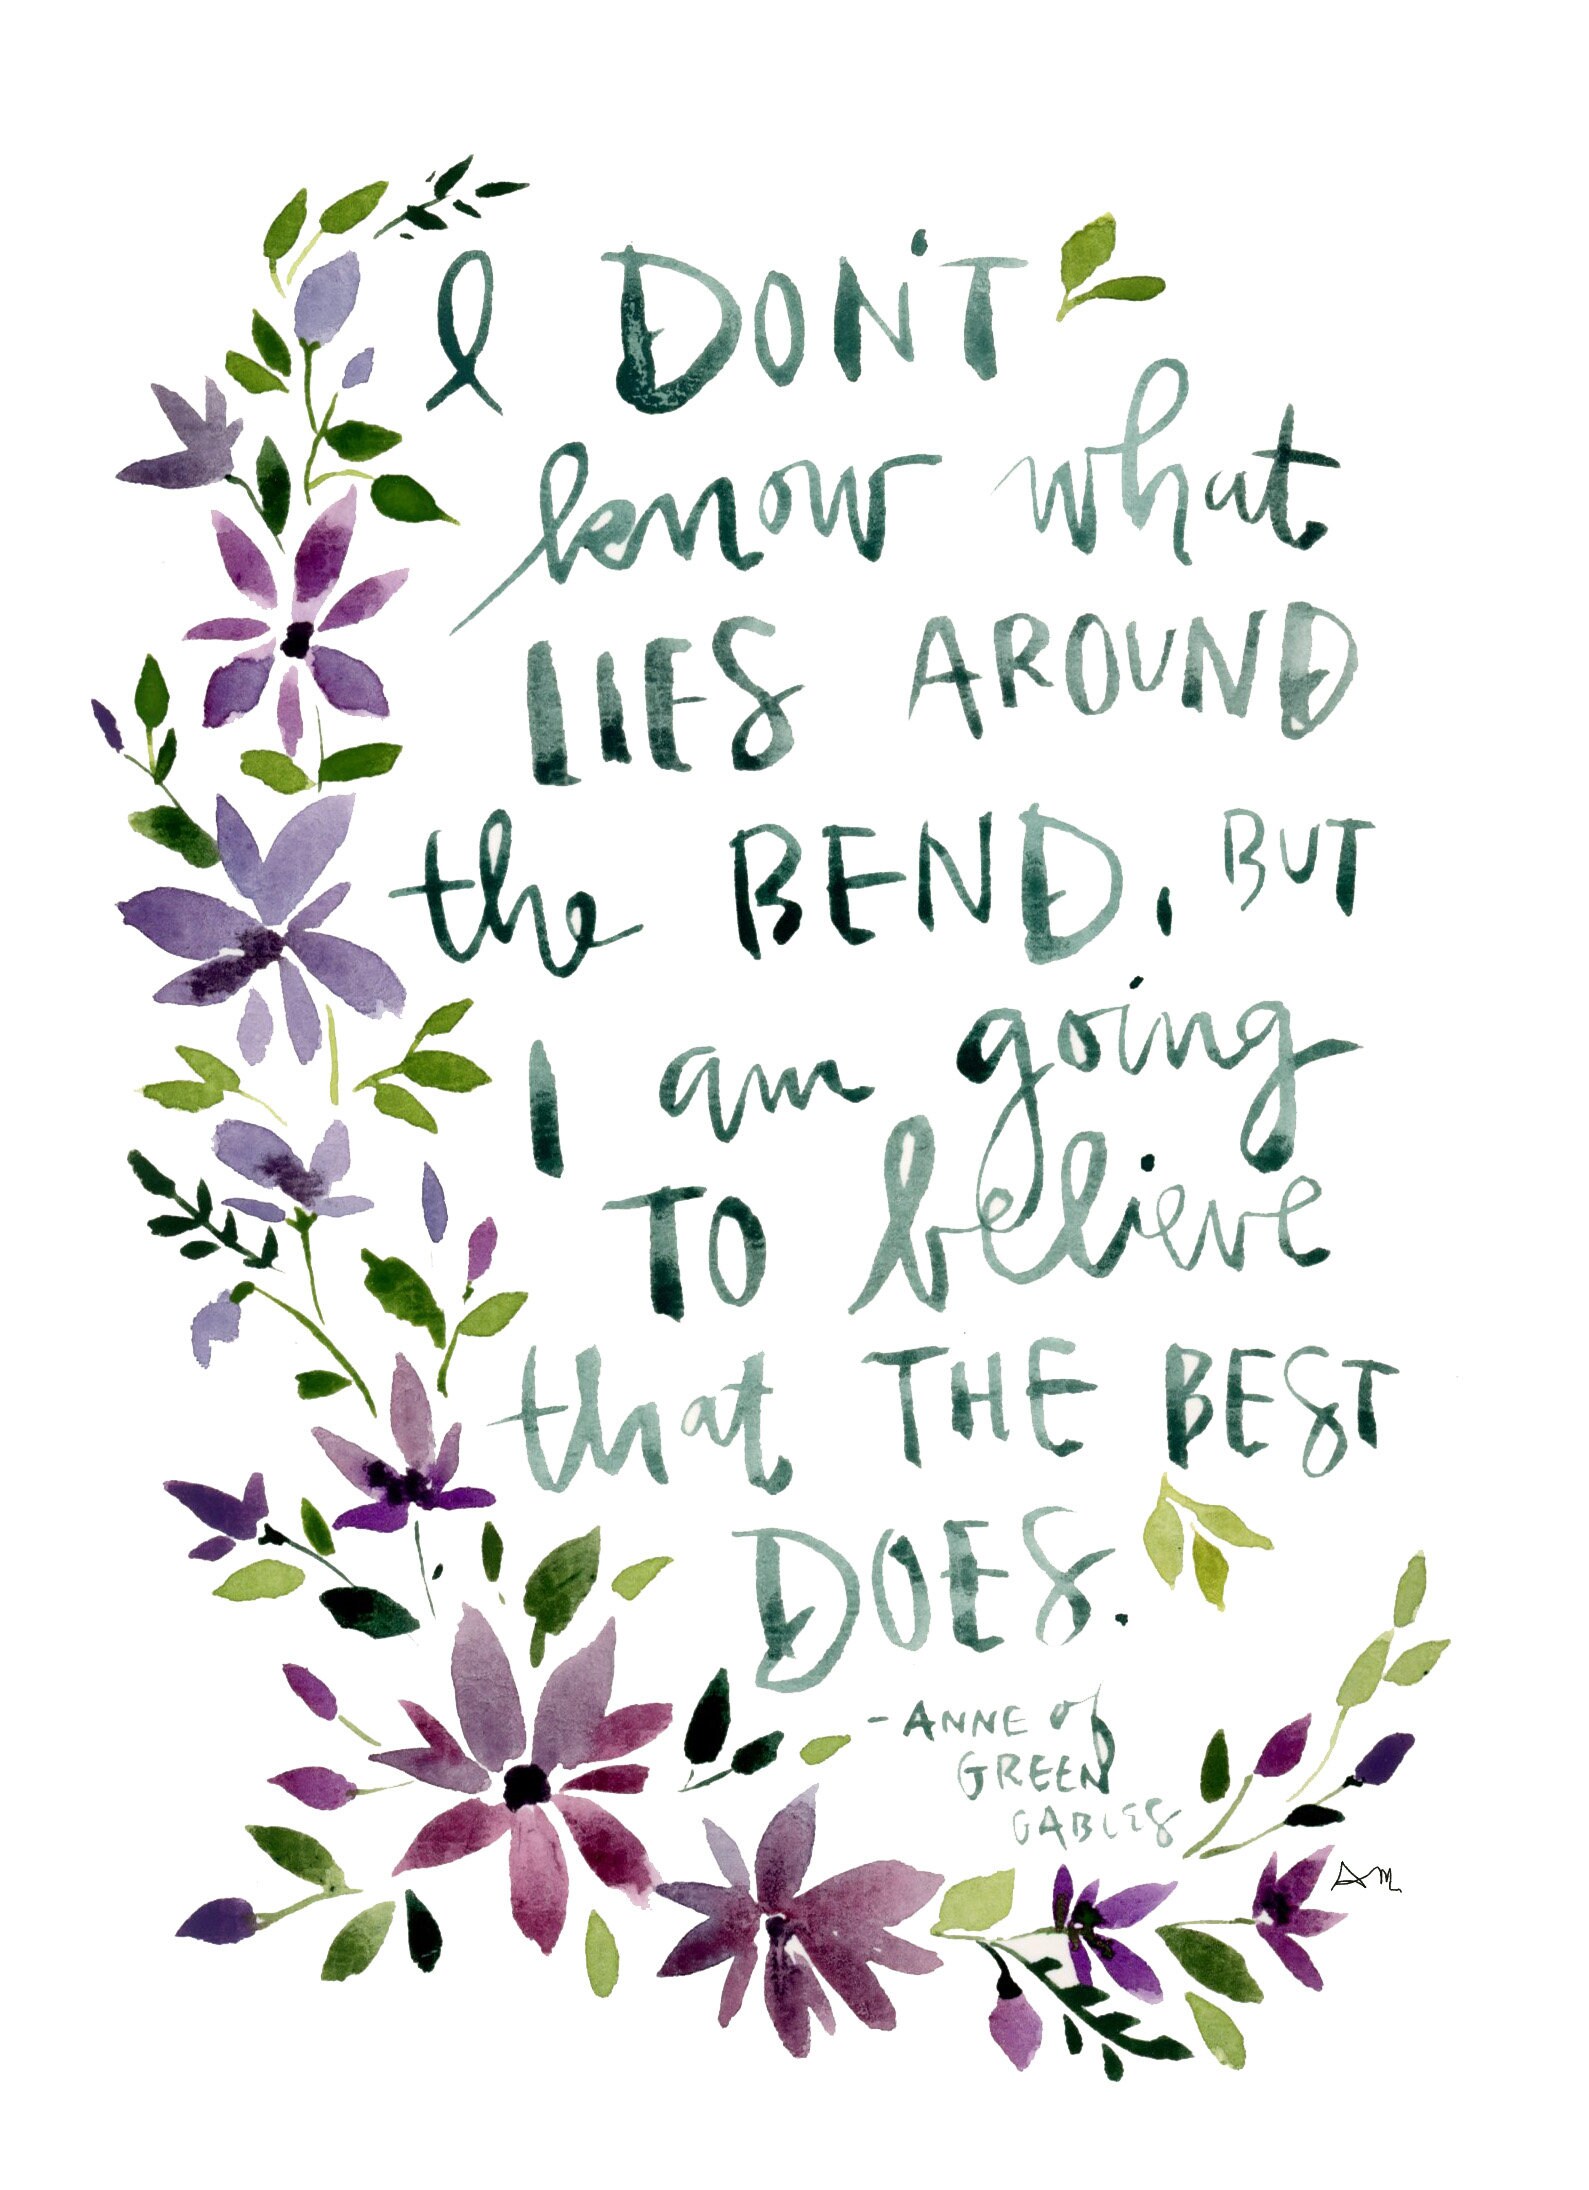 I DON'T
know what
LIES AROUND
the BEND, BUT
I am going
TO believe
that THE BEST
DOES.
- ANNE of
GREEN
GABLES
AM